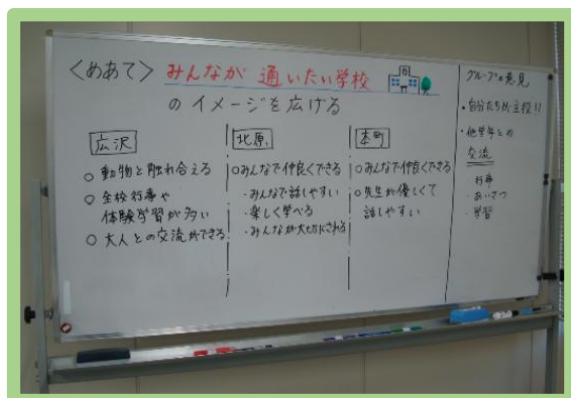 <めあて> みんなが 通いたい学校
のイメージを広げる
広沢
○ 動物と触れ合える
○ 全校行事や
体験学習が多い
○ 大人との交流ができる
北原
○みんなで仲良くできる
・みんなで話しやすい
・楽しく学べる
・みんなが大切にされる
本町
○みんなで仲良くできる
○先生が優しくて
話しやすい
グループの意見
・自分たちが主役!!
・他学年との
交流
・行事
・あいさつ
・学習